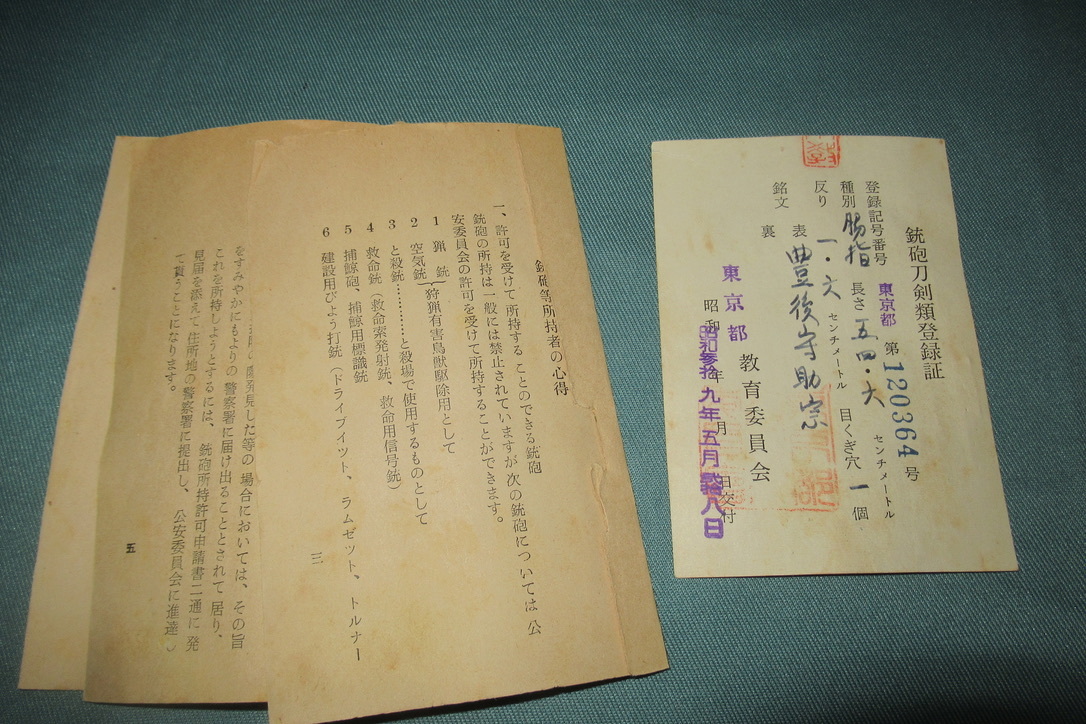 銃砲刀剣類登録証
登録記号番号 東京都 第 120364 号
種別 脇指 長さ 五四・六 センチメートル
反り 一・六 センチメートル 目くぎ穴 一 個
銘文 表 豊後守助宗
裏
東京都教育委員会
昭和 年 月 日交付
昭和参拾九年五月弐拾八日
銃砲等所持者の心得
一、許可を受けて所持することのできる銃砲
銃砲の所持は一般には禁止されていますが次の銃砲については公
安委員会の許可を受けて所持することができます。
1 猟 銃
2 空気銃 狩猟有害鳥獣駆除用として
3 と殺銃………と殺場で使用するものとして
4 救命銃(救命索発射銃、救命用信号銃)
5 捕鯨砲、捕鯨用標識銃
6 建設用びよう打銃(ドライブイツト、ラムゼツト、トルナー
三
発見した等の場合においては、その旨
をすみやかにもよりの警察署に届け出ることとされて居り、
これを所持しようとするには、銃砲所持許可申請書二通に発
見届を添えて住所地の警察署に提出し、公安委員会に進達し
て貰うことになります。
五